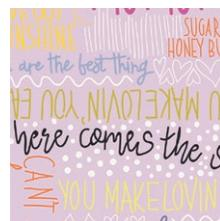 NSHINE
SUGAR
HONEY BU
are the best thing
YOU MAKE LOVIN' YOU EA
here comes the s
CAN'T
YOU MAKE LOVIN